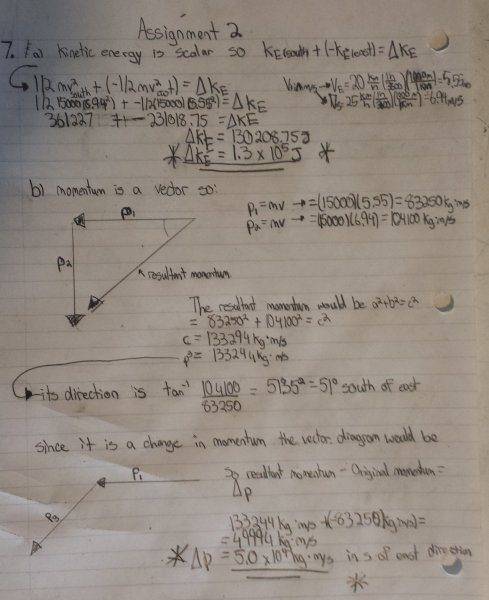 Assignment 2
7. a) Kinetic energy is scalar so KE(south) + (-KE(east)) = ΔKE
1/2 mv² south + (-1/2mv² east) = ΔKE
1/2 15000(6.94²) + -1/2(15000)(5.55²) = ΔKE
361227 + - 231018.75 = ΔKE
ΔKE = 130208.75 J
* ΔKE = 1.3 x 10⁵ J *
V in m/s → VE = 20 km/h (1h/3600)(1000m/1km) = 5.55 m/s
→ VS = 25 km/h (1h/3600)(1000m/1km) = 6.94 m/s
b) momentum is a vector so:
P1
P2
resultant momentum
P1 = mv → = (15000)(5.55) = 83250 kg·m/s
P2 = mv → = (15000)(6.94) = 104100 kg·m/s
The resultant momentum would be a²+b²=c²
= 83250² + 104100² = c²
c = 133294 kg·m/s
= 133244 kg·m/s
its direction is tan⁻¹ 104100/83250 = 51.35² = 51° south of east
since it is a change in momentum the vector diagram would be
P1
P3
So resultant momentum - Original momentum =
Δp
133244 kg m/s + (-83250 kg m/s) =
= 49994 kg·m/s
* Δp = 5.0 x 10⁴ kg·m/s in s of east direction
*